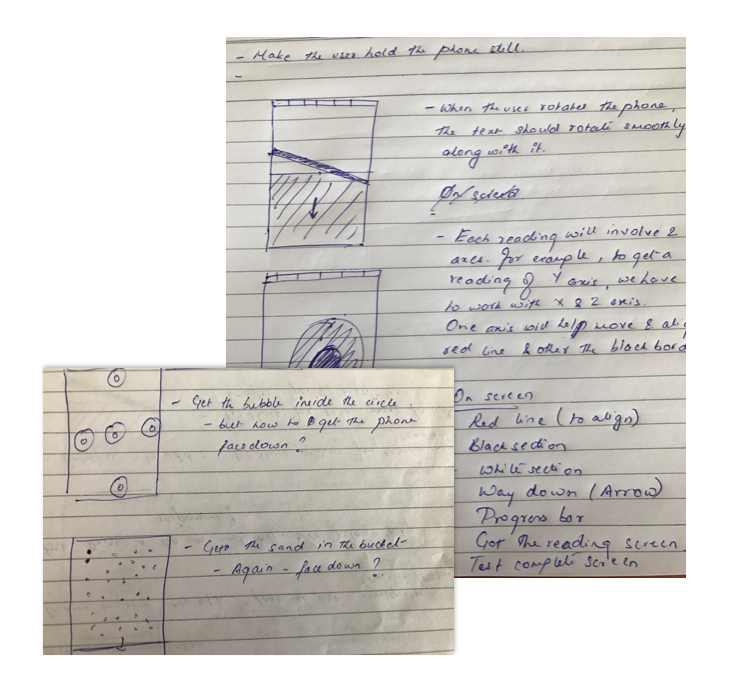 - Make the user hold the phone still.
-
- When the user rotates the phone,
the text should rotate smoothly
along with it.
On screen
- Each reading will involve 2
axes. For example, to get a
reading of Y axis, we have
to work with X & Z axis.
One axis will help move & alig
red line & other the black bord
On screen
Red line (to align)
Black section
White section
Way down (Arrow)
Progress bar
Got the reading screen
Test complete screen
- Get the bubble inside the circle.
- but how to get the phone
facedown?
- Get the sand in the bucket
- Again - face down?